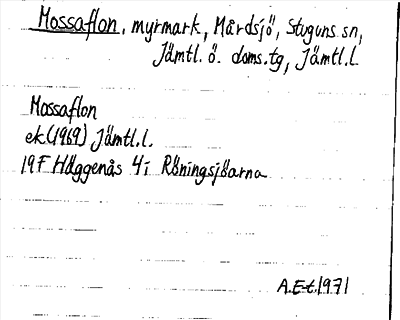 Mossaflon, myrmark, Mårdsjö, Stuguns sn,
Jämtl. ö. doms.tg, Jämtl.l.
Mossaflon
ek(1969) Jämtl.l.
19F Häggenås 4i Röningsjöarna
A.E-t.1971